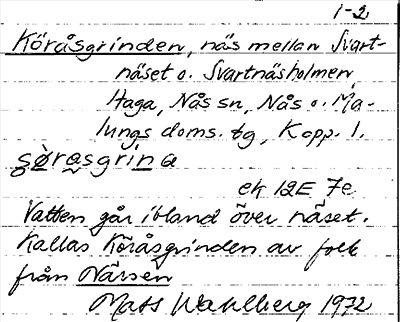 1-2
Köråsgrinden, näs mellan Svart-
näset o. Svartnäsholmen
Haga, Nås sn, Nås o. Ma-
lungs doms. tg, Kopp. l.
ek 12E 7e
Vatten går ibland över näset.
Kallas Köråsgrinden av folk
från Närsen
Mats Wahlberg 1972